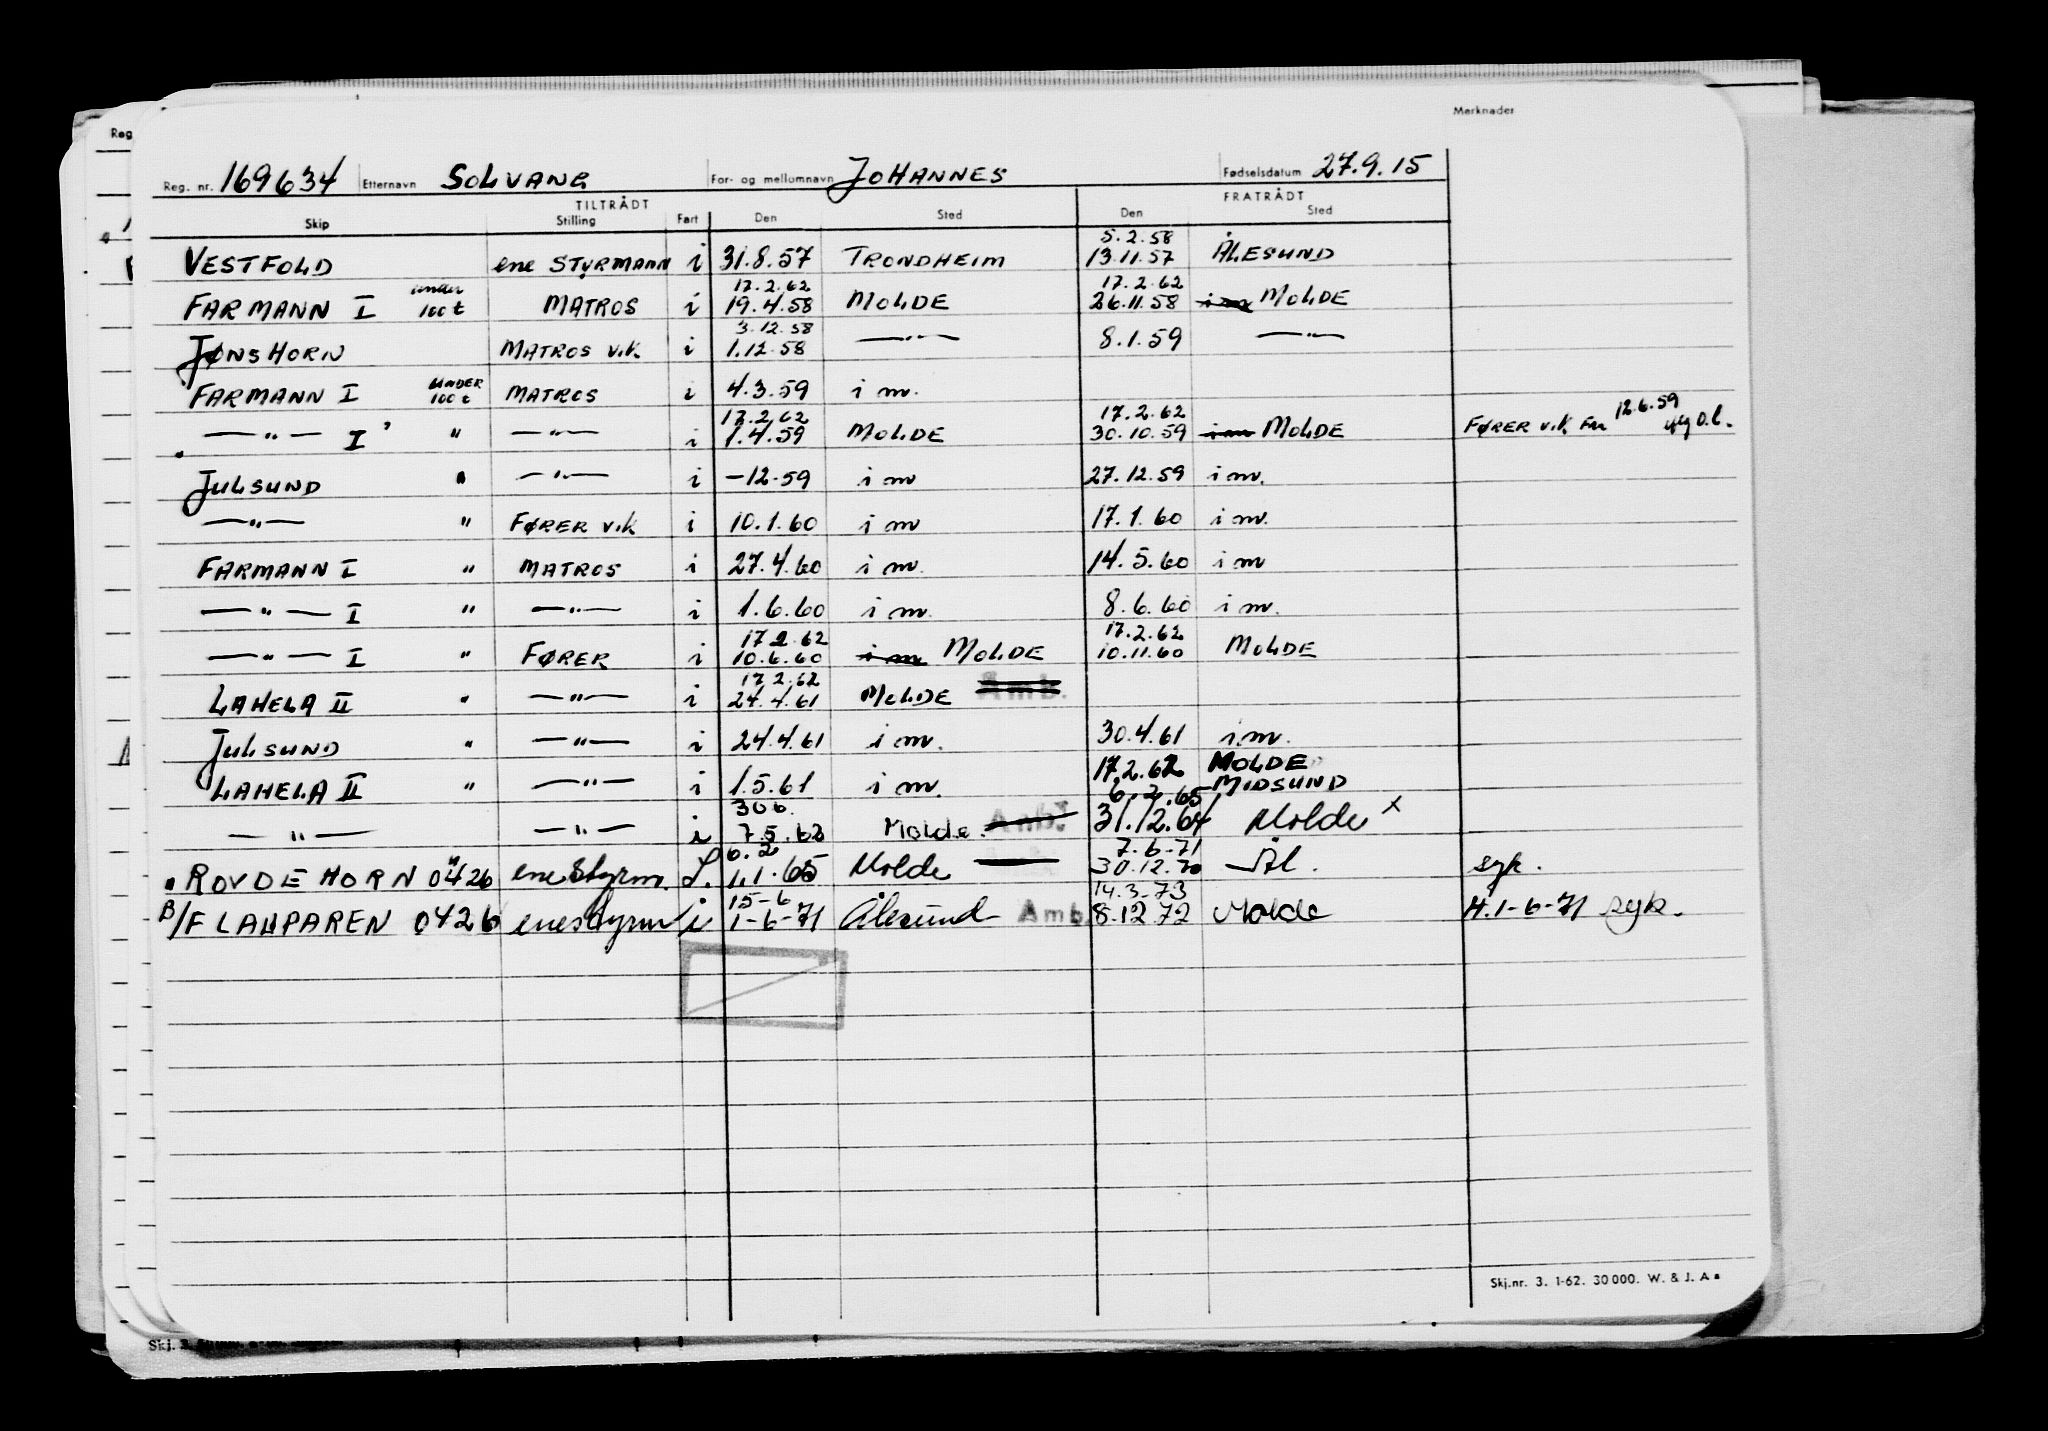 Merknader
Reg
Reg. nr. 169634 Etternavn SOLVANG For- og mellomnavn JOHANNES Fødselsdatum 27.9.15
TILTRÅDT FRATRÅDT
Skip Stilling Fart Den Sted Den Sted
5.2.58
VESTFOLD ene STYRMANN i 31.8.57 TRONDHEIM 13.11.57 ÅLESUND
under 17.2.62 17.2.62
FARMANN I 100 t MATROS i 19.4.58 MOLDE 26.11.58 i m MOLDE
3.12.58
JØNSHORN MATROS v.k. i 1.12.58 —"— 8.1.59 —"—
UNDER
FARMANN I 100 t MATROS i 4.3.59 i m.
17.2.62 17.2.62 12.6.59
—"— I " —"— i 1.4.59 MOLDE 30.10.59 i m MOLDE FØRER v.k. fra iflg O.l.
JULSUND " —"— i -12-59 i m 27.12.59 i m.
—"— " FØRER v.k i 10.1.60 i m 17.1.60 i m.
FARMANN I " MATROS i 27.4.60 i m. 14.5.60 i m
—"— I " —"— i 1.6.60 i m. 8.6.60 i m.
17.2.62 17.2.62
—"— I " FØRER i 10.6.60 i m MOLDE 10.11.60 MOLDE
17.2.62
LAHELA II " —"— i 24.4.61 MOLDE Amb.
JULSUND " —"— i 24.4.61 i m. 30.4.61 i m.
17.2.62 MOLDE
LAHELA II " —"— i 1.5.61 i m. 6.2.65 MIDSUND
30 6
—"— —"— i 7.5.62 Molde. Amb. 31.12.64 Molde x
6.2 7.6-71
ROVDEHORN 0426 ene Styrm. L. 1.1.65 Molde 30.12.70 Ål. syk.
15-6 14.3-73
B/F LAUPAREN 0426 enestyrm i 1-6-71 Ålesund Amb. 8.12 72 Molde H.1-6-71 syk.
Skj.nr. 3. 1-62. 30000. W. & J. A
Skj.